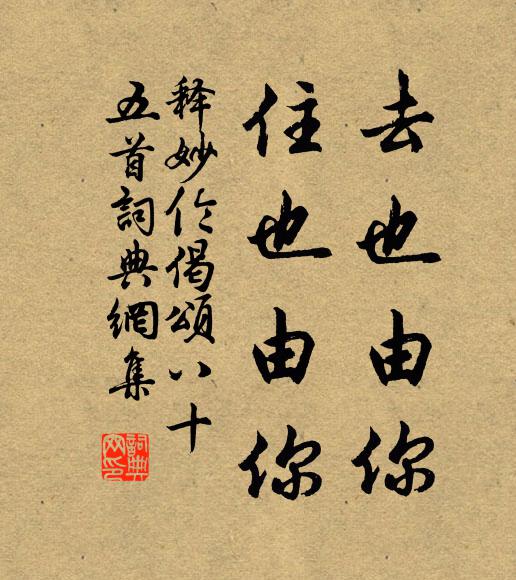 去也由你
住也由你
释妙伦偈颂八十
五首詞典網集
詞典网印